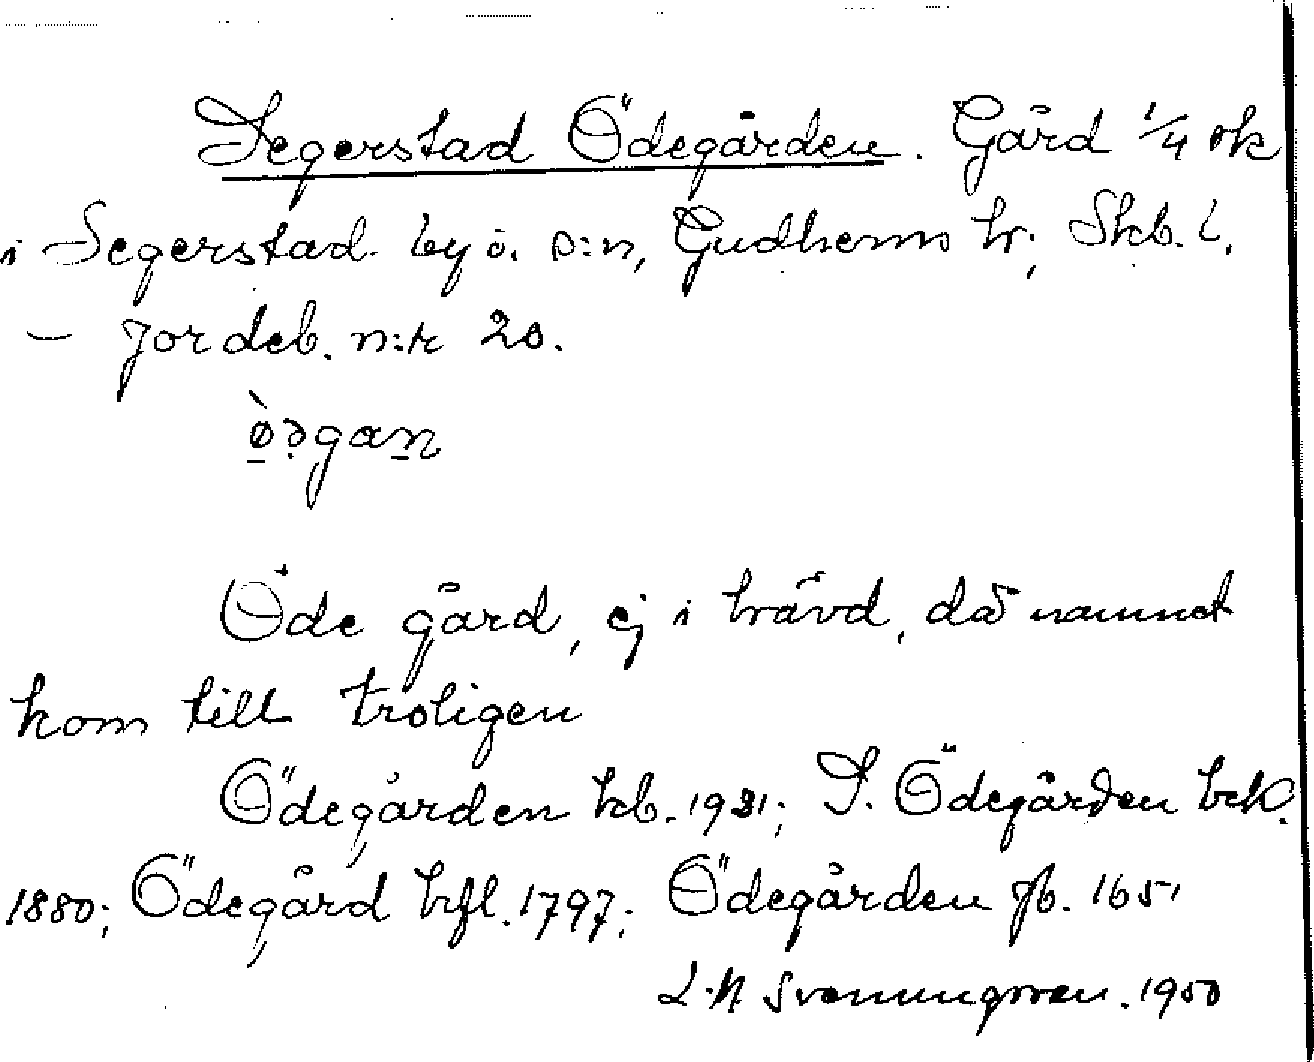 Segerstad Ödegården. Gård 1/4 ok
i Segerstad by o. s:n, Gudhems hr, Skb. l.
– Jordeb. n:r 20.
Öde gård, ej i hävd, då namnet
kom till troligen
Ödegården hb. 1921; S. Ödegården hek.
1880; Ödegård hfl. 1797; Ödegården jb. 1651
L.N Svenungsson. 1950